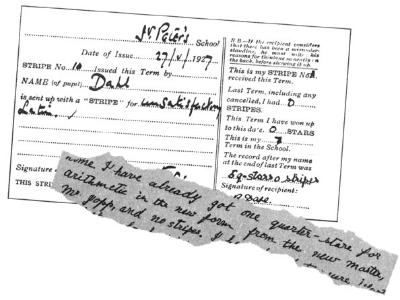 St Peter's School
Date of Issue 27/v/1927
STRIPE No. 10 issued this Term by
NAME (of pupil) Dahl
is sent up with a "STRIPE" for unsatisfactory
Latin.
Signature
THIS STRIP
N.B.—If the recipient considers
that there has been a misunder-
standing, he must write his
the back, before showing it up.
This is my STRIPE No.
received this Term.
Last Term, including any
cancelled, I had 0
STRIPES.
This Term I have won up
to this date. 0 STARS
This is my
Term in the School.
The record after my name
at the end of last Term was
Signature of recipient:
I have already got one quarter-star for
arithmetic in the new form from the new master,
and no stripes.